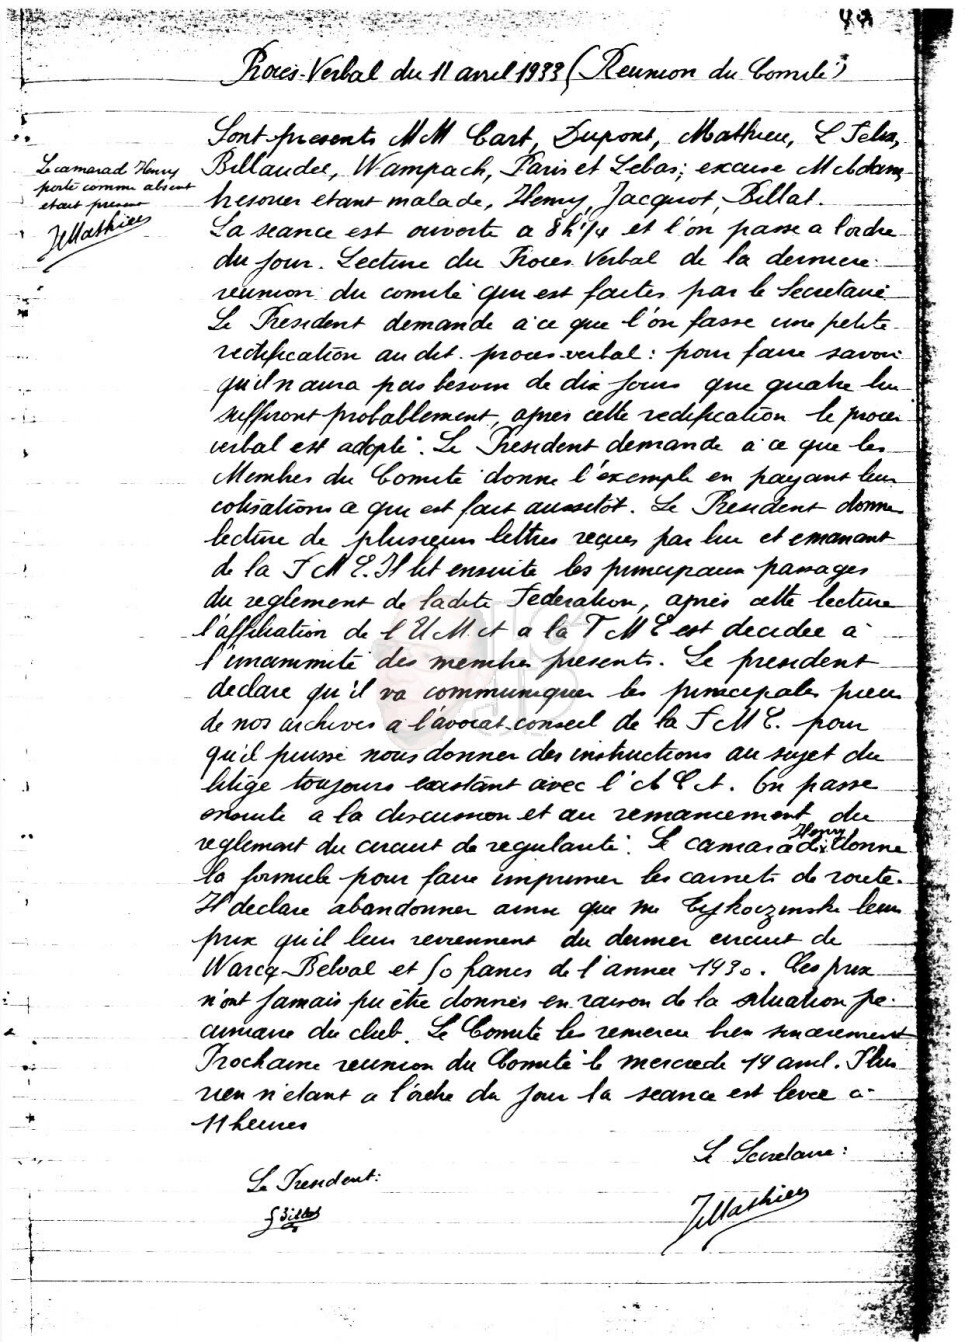 Procès-Verbal du 11 avril 1933 (Reunion du Comité)
Sont presents MM Cart, Dupont, Mathieu, L Felix,
Billaudel, Wampach, Paris et Lebas; excuse M Adam,
tresorier etant malade, Henry, Jacquot, Billat.
Le camarad Henry
porté comme absent
etait present
JMathieu
La seance est ouverte a 8h 1/4 et l'on passe a l'ordre
du jour. Lecture du Proces Verbal de la derniere
reunion du comité qui est faites par le Secretaire
Le President demande à ce que l'on fasse une petite
rectification au dit proces-verbal: pour faire savoir
qu'il n'aura pas besoin de dix jours que quatre lui
suffiront probablement, après cette rectification le proces
verbal est adopté. Le President demande a ce que les
Membres du Comité donne l'exemple en payant leur
cotisations a que est fait aussitôt. Le President donne
lecture de plusieurs lettres reçues par lui et emanant
de la FME. Il lit ensuite les principaux passages
du reglement de ladite Federation, après cette lecture
l'affiliation de l'UMA a la FME est decidée à
l'unanimité des membres presents. Le president
declare qu'il va communiquer les principales pieces
de nos archives a l'avocat-conseil de la FME. pour
qu'il puisse nous donner des instructions au sujet du
litige toujours existant avec l'AEA. On passe
ensuite a la discussion et au remaniement du
reglement du circuit de regularité. Le camarade Henry donne
la formule pour faire imprimer les carnets de route.
Il declare abandonner ainsi que Mr leur
prix qu'il leur reviennent du dernier circuit de
Warcq-Belval et 50 francs de l'année 1930. Ces prix
n'ont jamais pu être donnés en raison de la situation pe-
cuniaire du club. Le Comité les remercie bien sincerement
Prochaine reunion du Comité le mercredi 19 avril. Plus
rien n'etant a l'ordre du jour la seance est levée a
11 heures
Le Secretaire:
Le President:
JMathieu